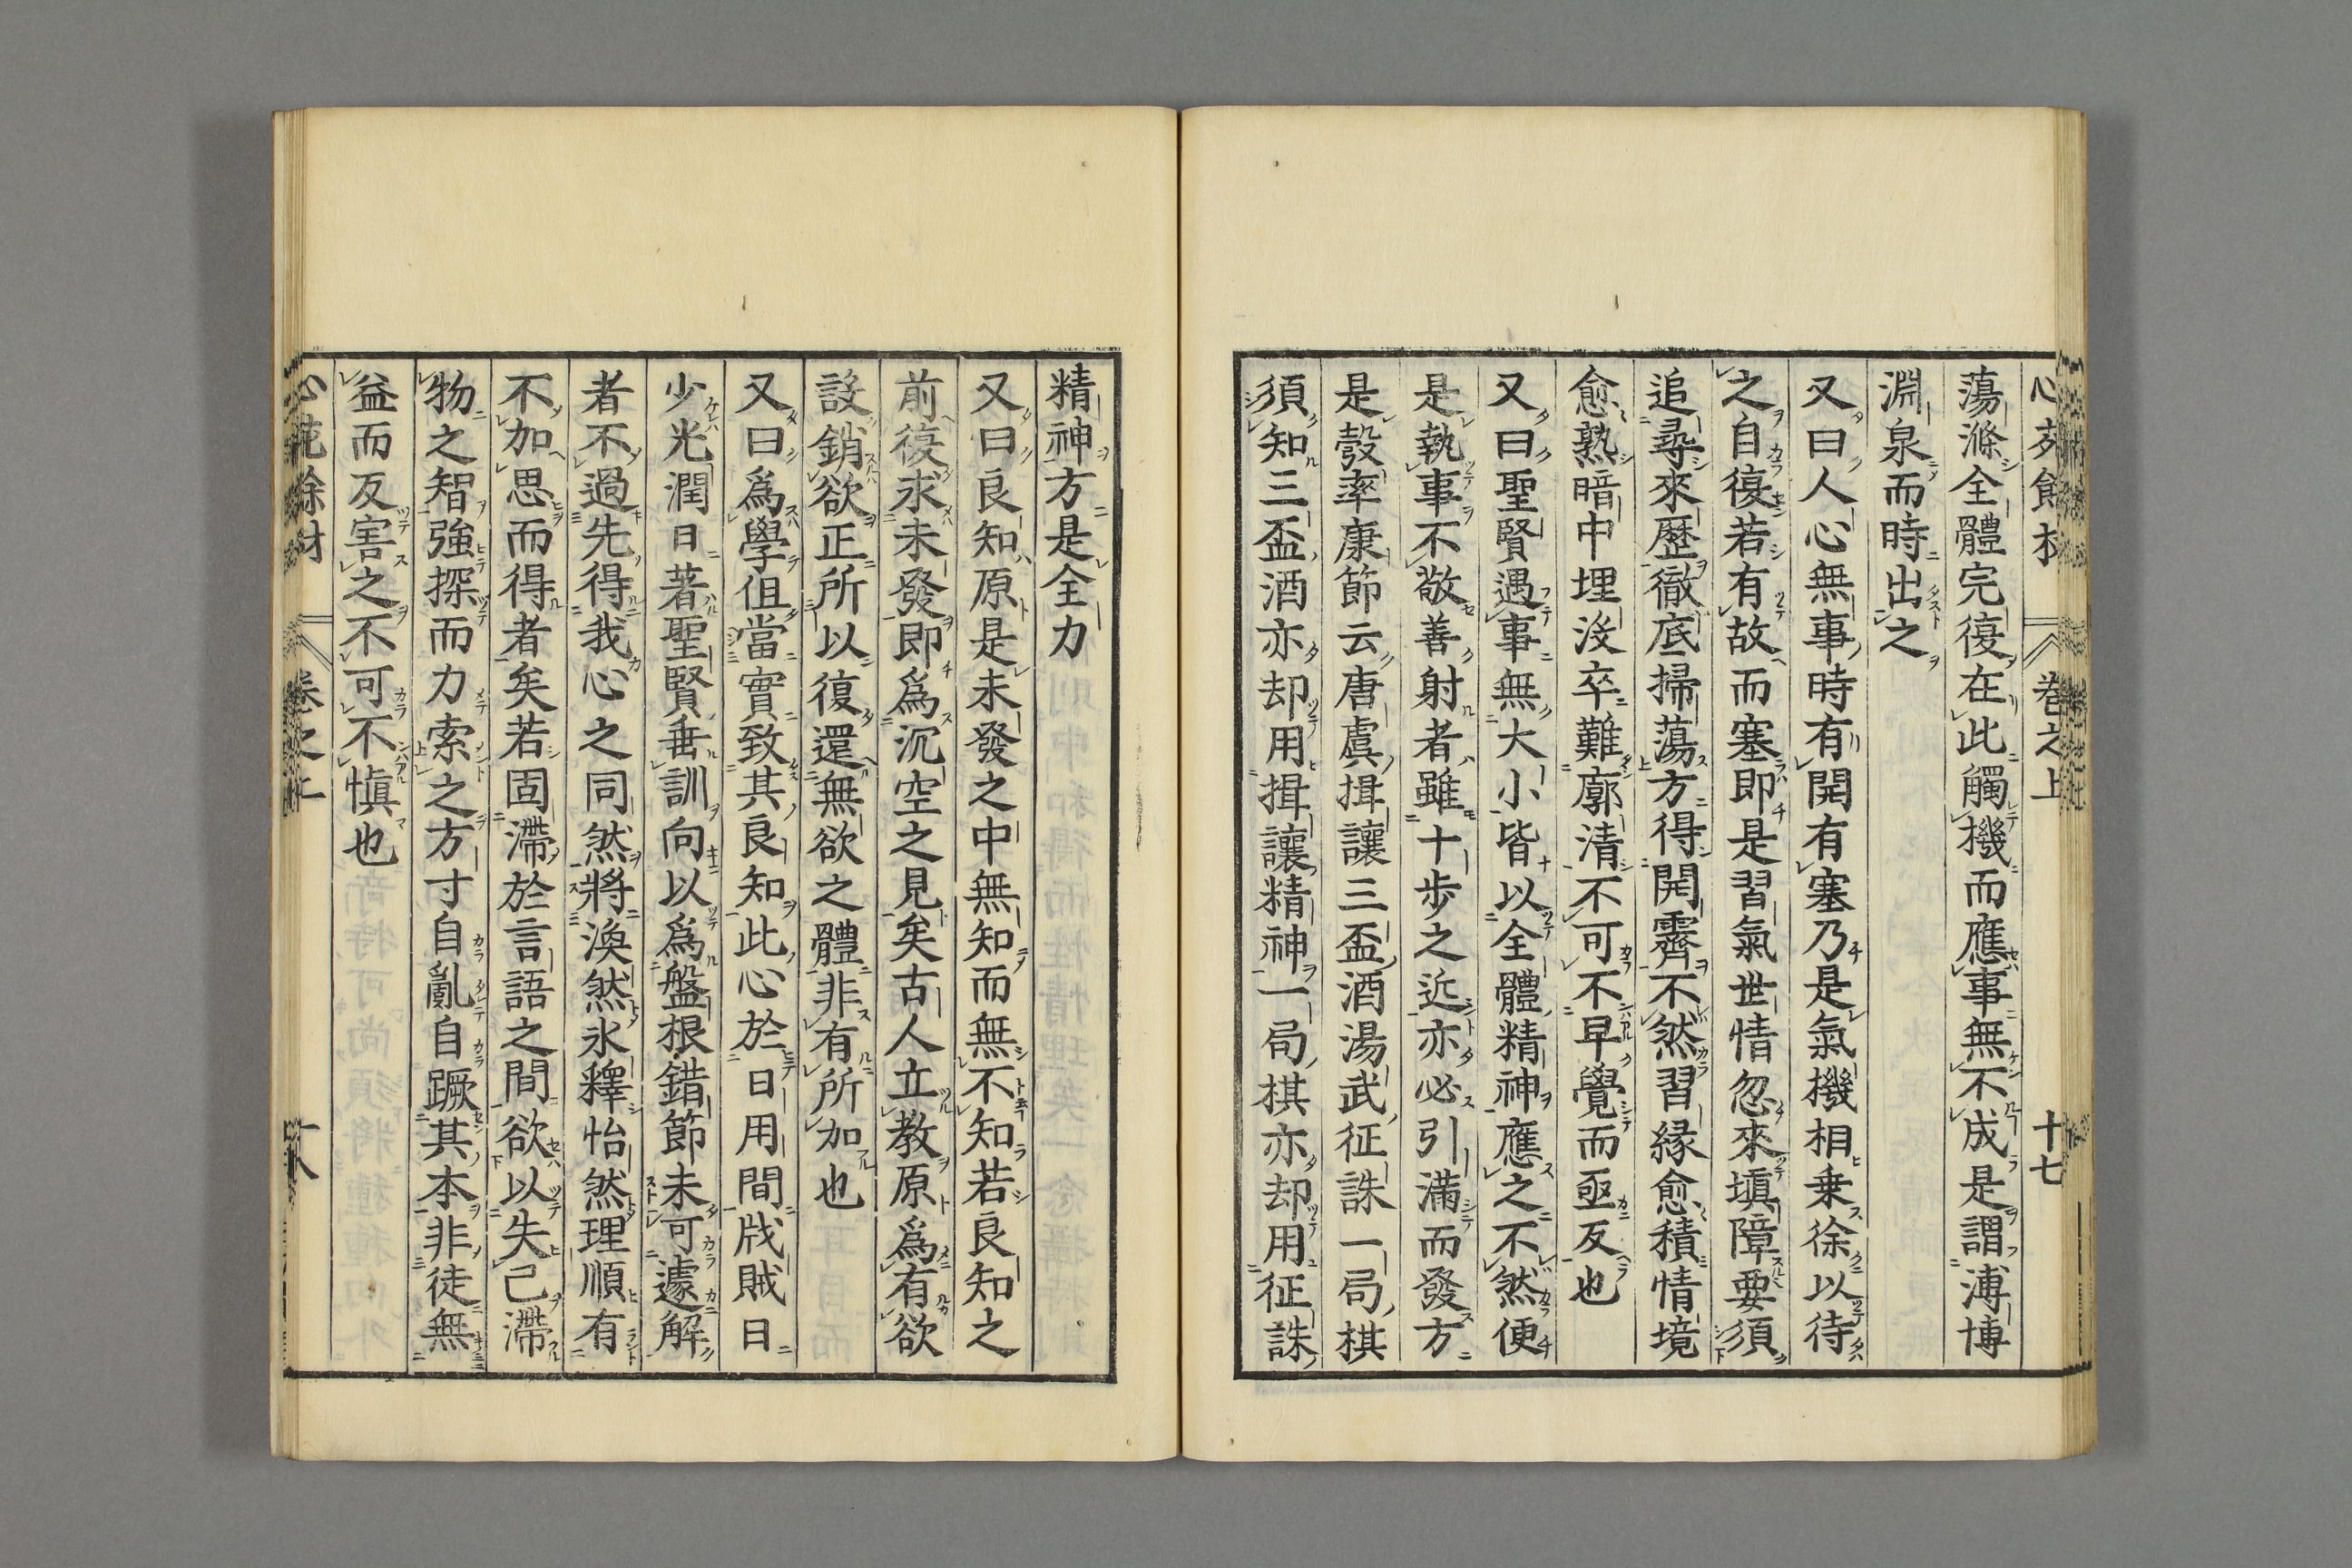 心花餘材 卷之上 十七
蕩滌全體完復在此觸機而應事無不成是謂溥博
淵泉而時出之
又曰人心無事時有開有塞乃是氣機相乘徐以待
之自復若有故而塞即是習氣世情忽來塡障要須
追尋來歷徹底掃蕩方得開霽不然習緣愈積情境
愈熟暗中埋沒卒難廓清不可不早覺而亟反也
又曰聖賢遇事無大小皆以全體精神應之不然便
是執事不敬善射者雖十步之近亦必引滿而發方
是彀率康節云唐虞揖讓三盃酒湯武征誅一局棋
須知三盃酒亦却用揖讓精神一局棋亦却用征誅
精神方是全力
又曰良知原是未發之中無知而無不知若良知之
前復求未發即爲沉空之見矣古人立教原爲有欲
設銷欲正所以復還無欲之體非有所加也
又曰爲學但當實致其良知此心於日用間戕賊日
少光潤日著聖賢垂訓向以爲盤根錯節未可遽解
者不過先得我心之同然將渙然氷釋怡然理順有
不加思而得者矣若固滯於言語之間欲以失己滯
物之智強探而力索之方寸自亂自蹶其本非徒無
益而反害之不可不愼也
心花餘材 卷之上 十八